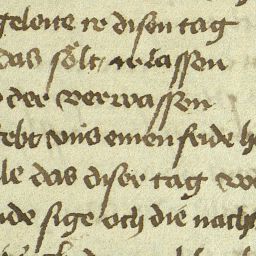 geleite ir disen tag
das sölt ir lassen
der verwassen
gebt uns einen fride h
le das diser tag vo
nde sige och die nacht